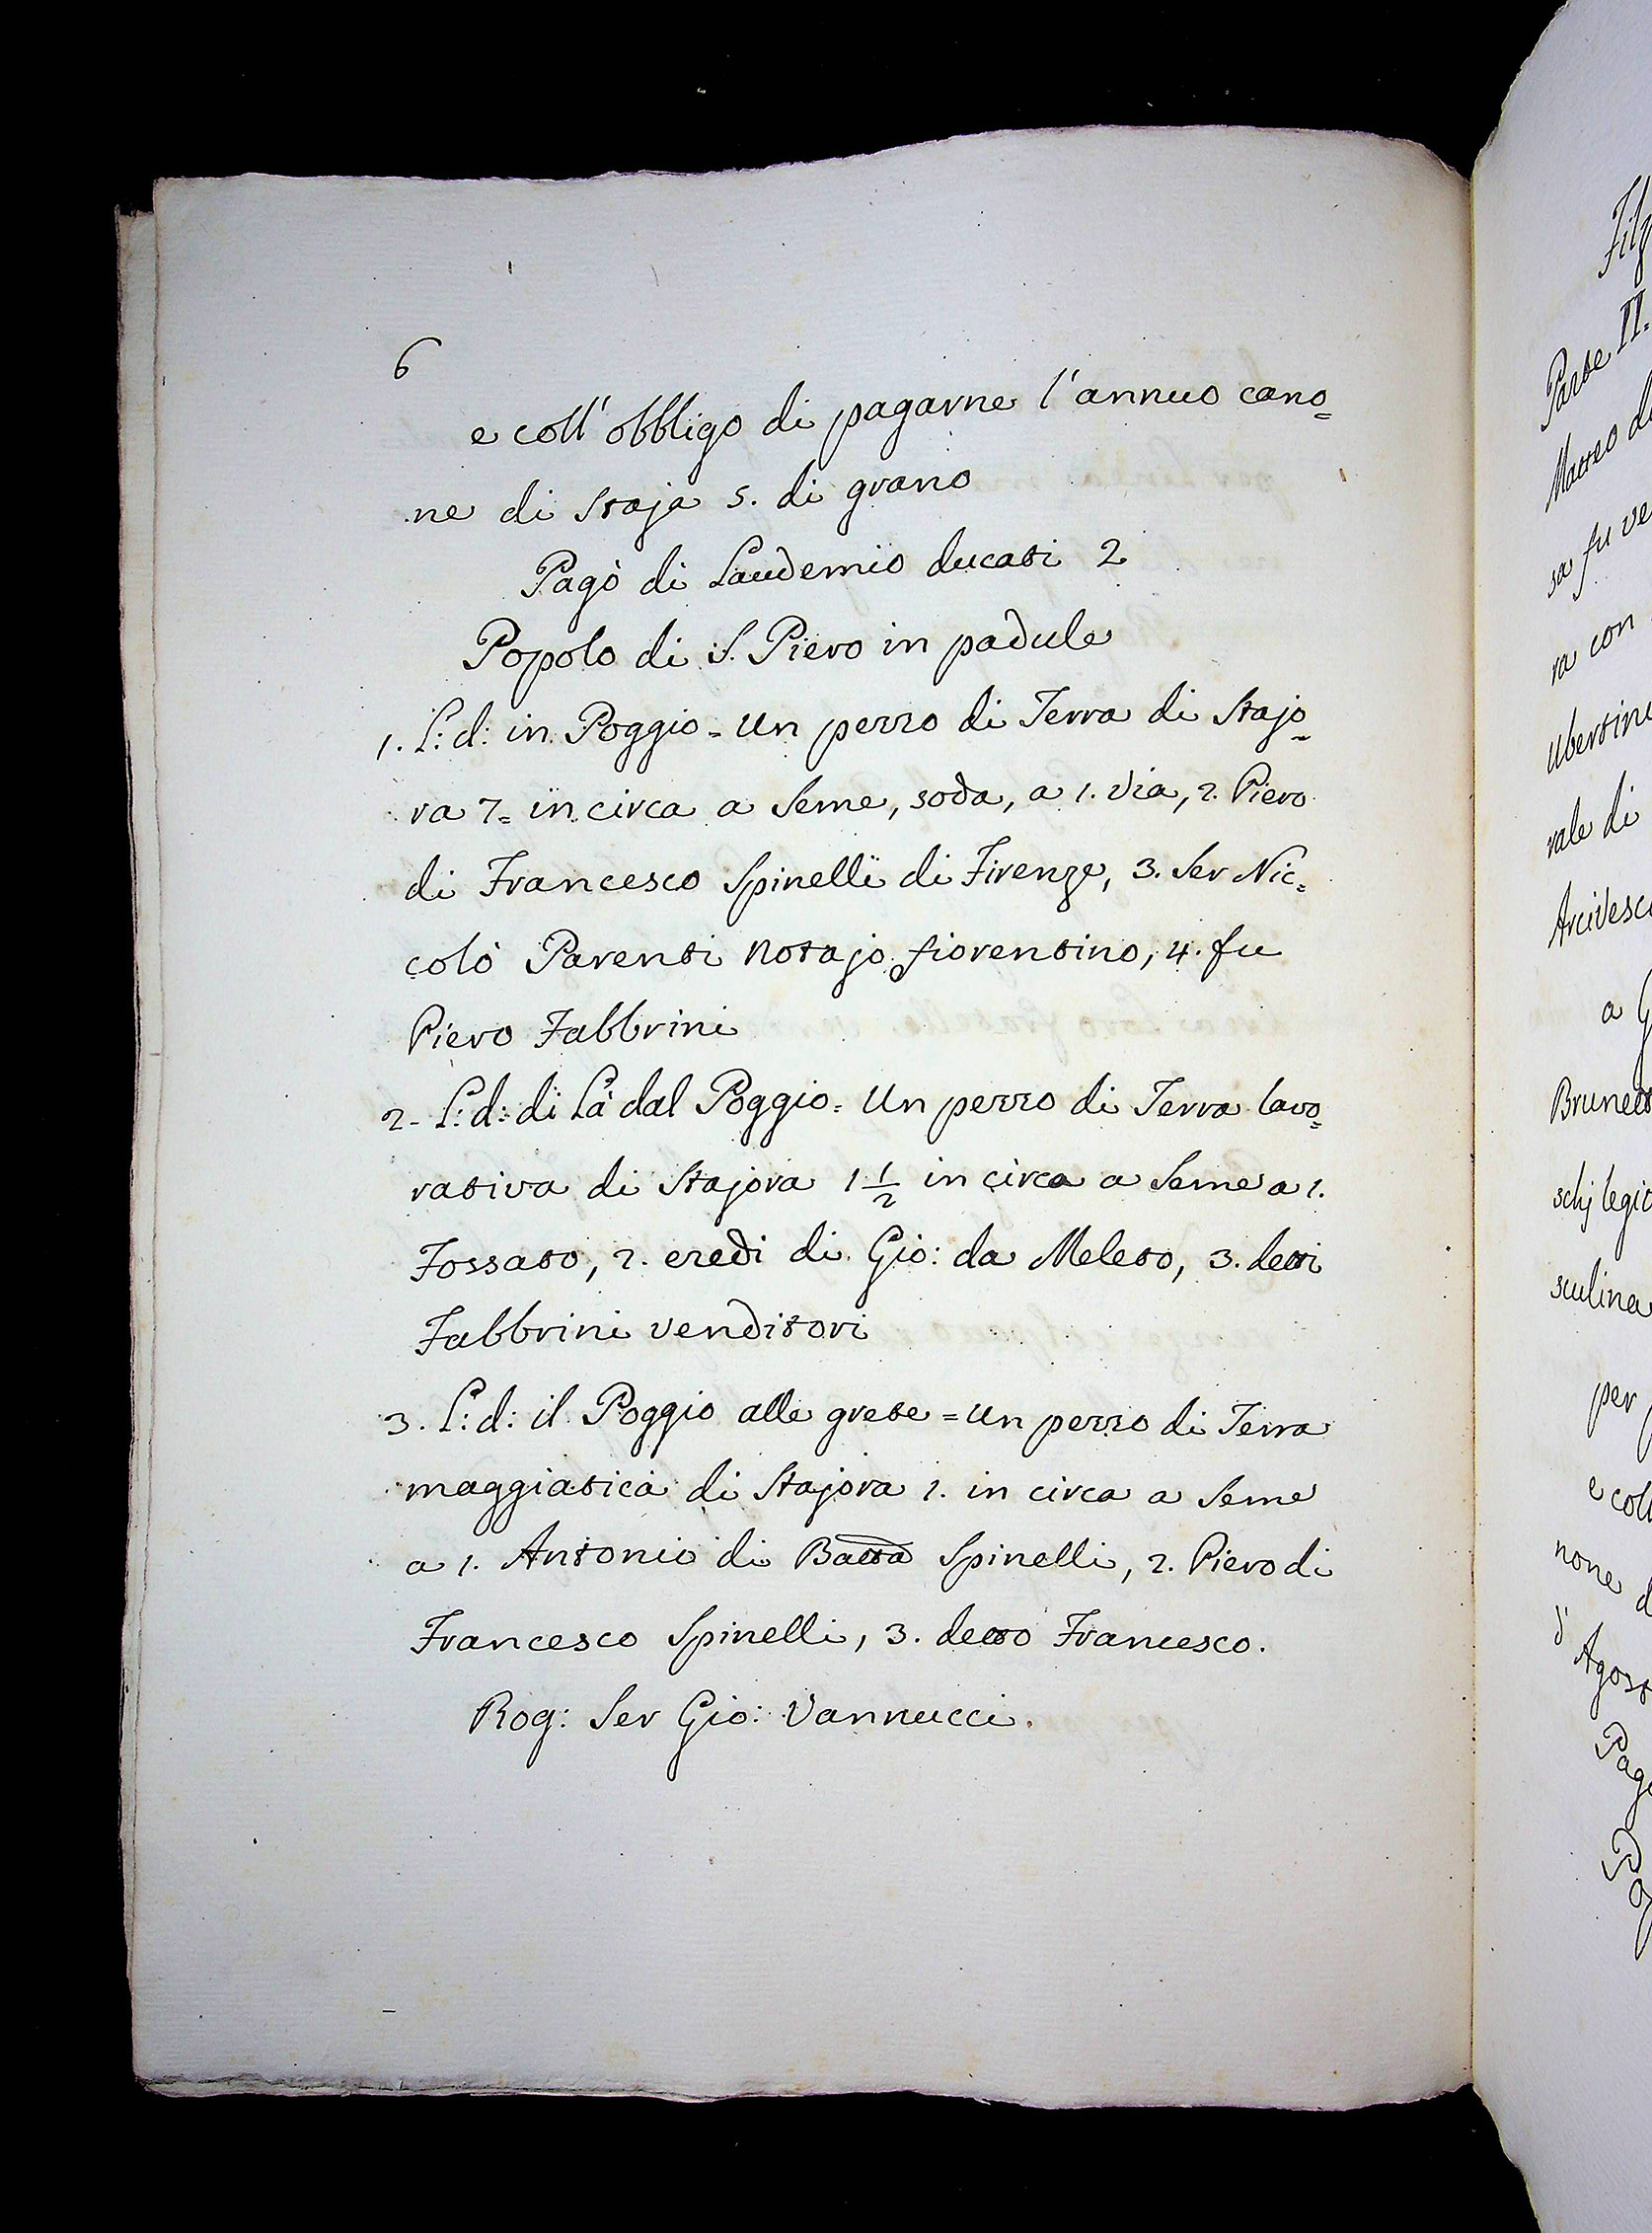 6
e coll' obbligo di pagarne l'annuo cano=
ne di Staja 5. di grano
Pagò di Laudemio ducati 2
Popolo di S. Piero in padule
1. L: d: in Poggio = Un pezzo di Terra di Stajo=
ra 7= in circa a Seme, soda, a 1. Via, 2. Piero
di Francesco Spinelli di Firenze, 3. Ser Nic=
colò Parenti Notajo fiorentino, 4. fu
Piero Fabbrini
2. L: d: di Là dal Poggio = Un pezzo di Terra lavo=
rativa di Stajora 1 1/2 in circa a Seme a 1.
Fossato, 2. eredi di Gio: da Meleto, 3. detti
Fabbrini venditori
3. L: d: il Poggio alle grete = Un pezzo di Terra
maggiatica di Stajora 1. in circa a Seme
a 1. Antonio di Batta Spinelli, 2. Piero di
Francesco Spinelli, 3. detto Francesco.
Rog: Ser Gio: Vannucci.
Parte II.
Matteo
sa fu
ra con
vale di
a
per
none